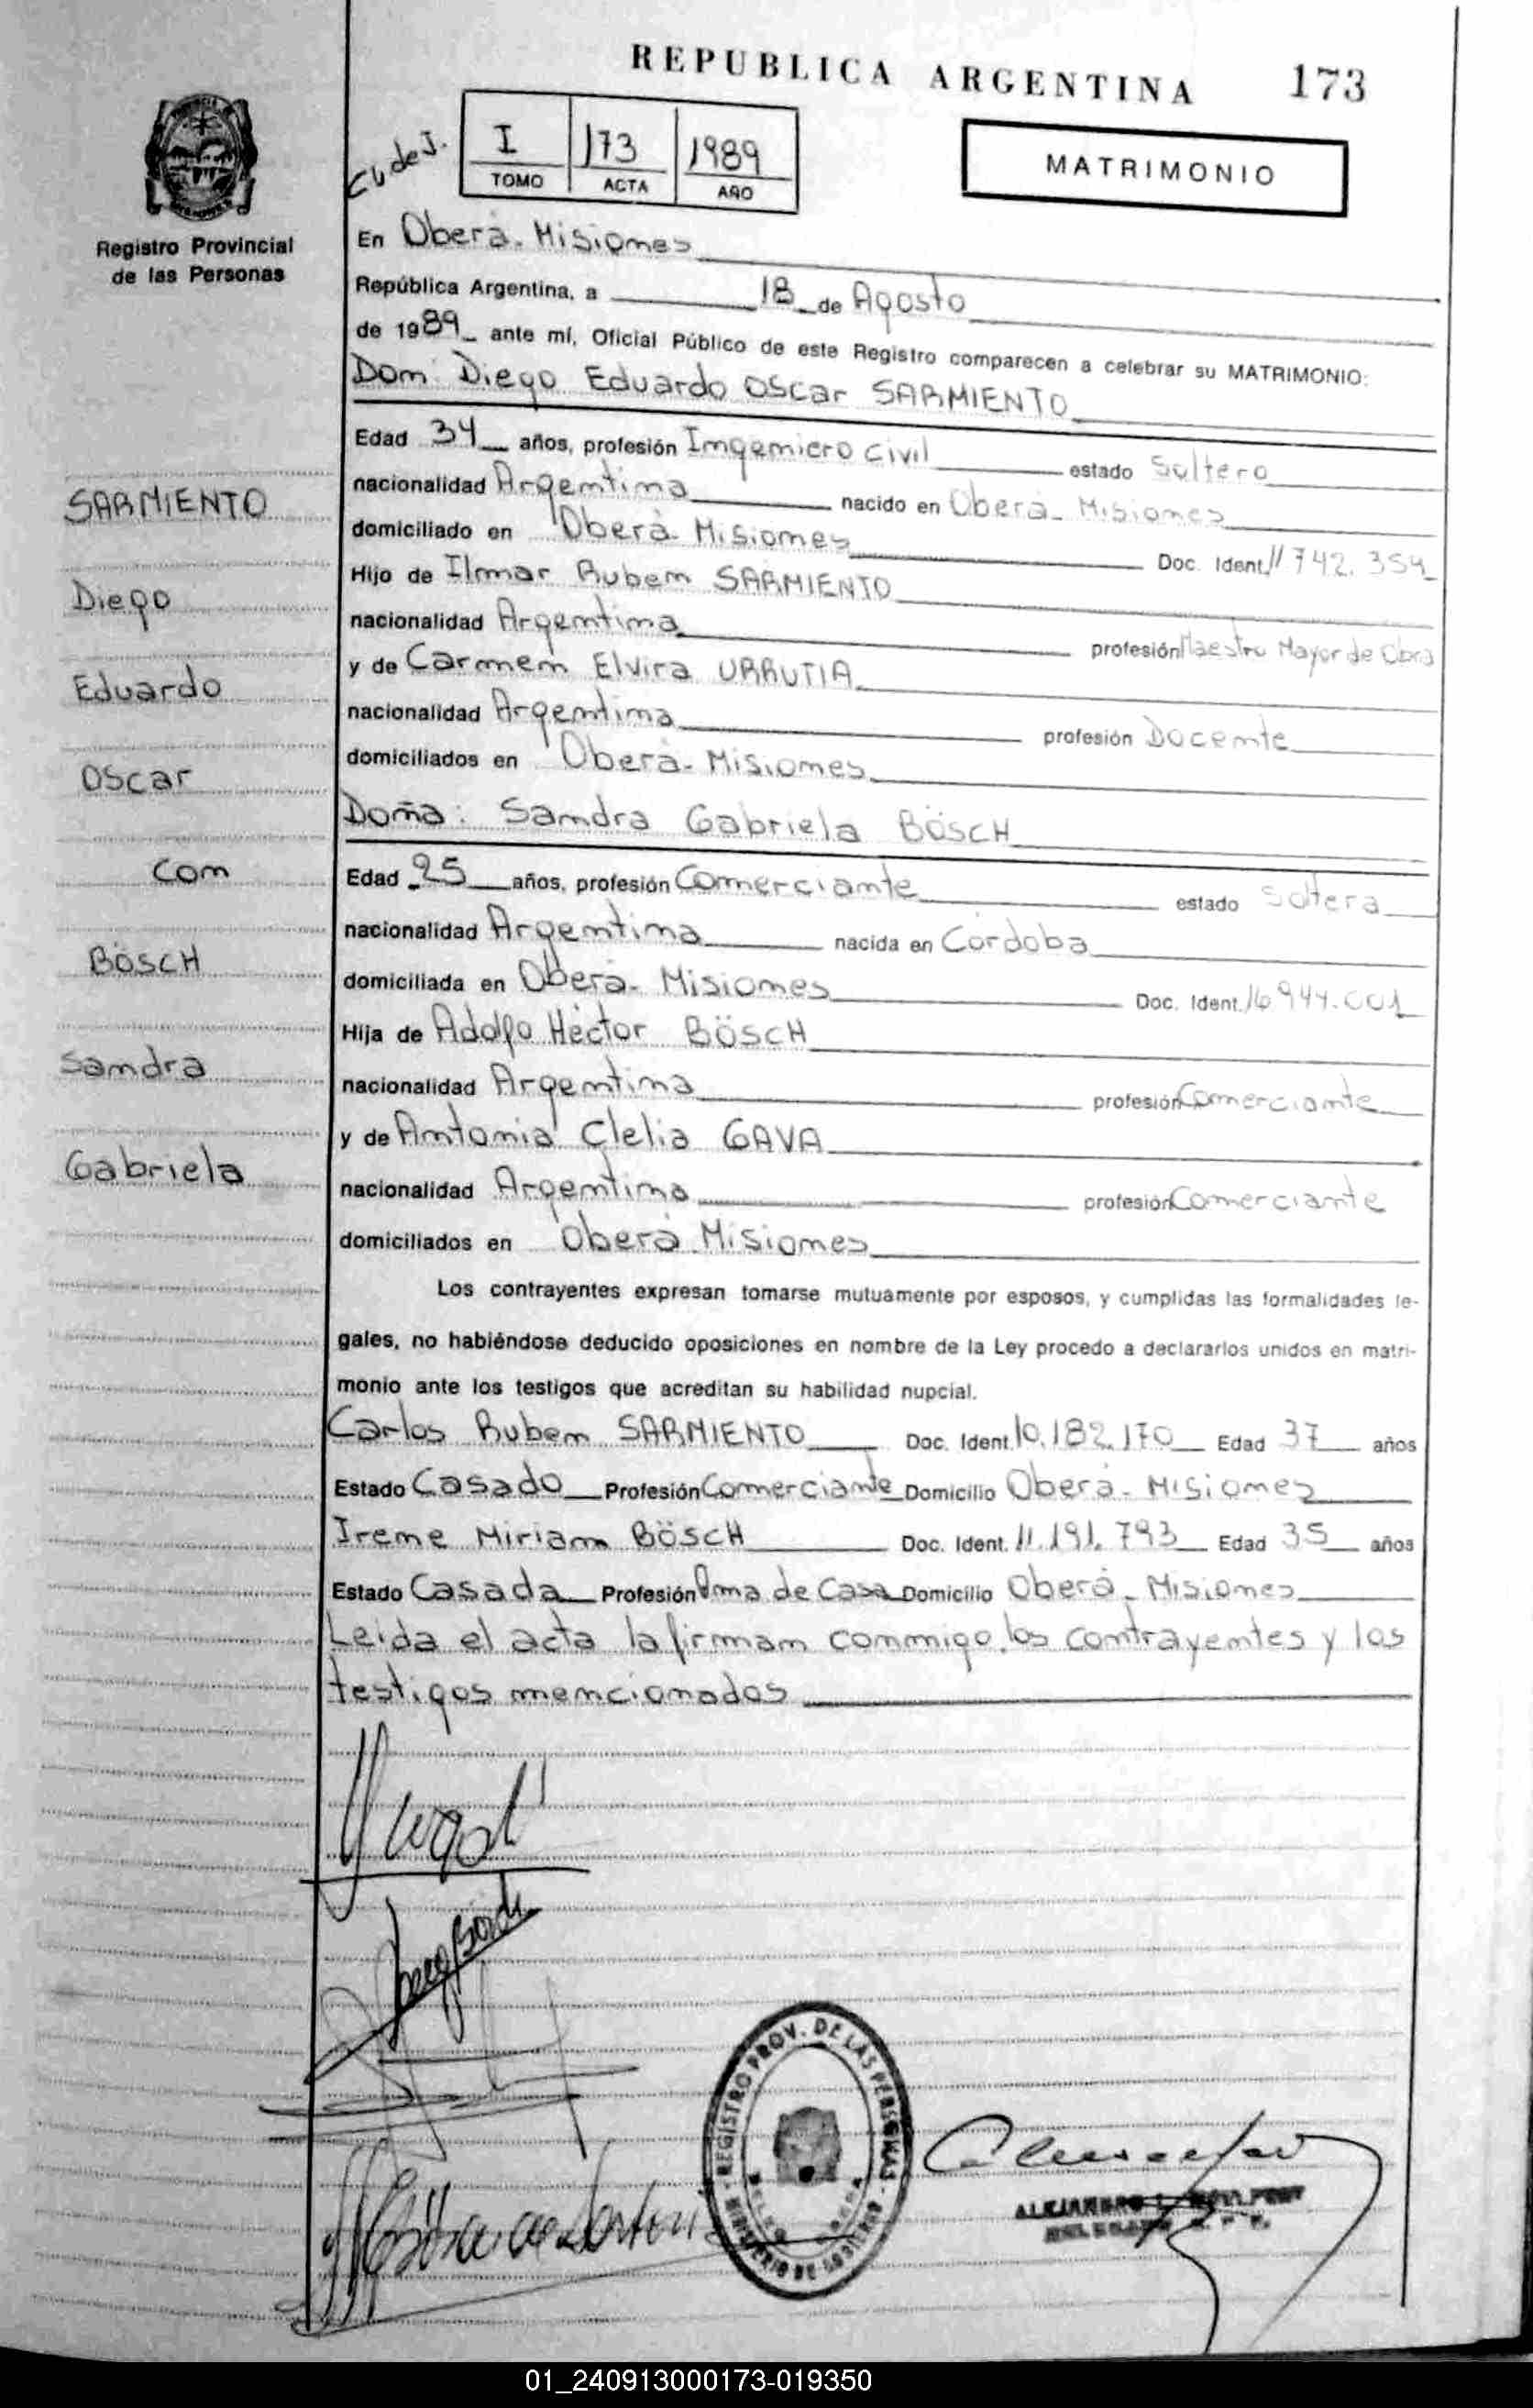 REPUBLICA ARGENTINA 173
I 173 1989
TOMO ACTA AÑO
MATRIMONIO
Registro Provincial
de las Personas
En Oberá-Misiones
República Argentina, a 18 de Agosto
de 1989 ante mí, Oficial Público de este Registro comparecen a celebrar su MATRIMONIO:
Don: Diego Eduardo Oscar SARMIENTO
Edad 34 años, profesión Ingeniero Civil estado Soltero
nacionalidad Argentina nacido en Oberá-Misiones
domiciliado en Oberá-Misiones Doc. Ident. 11742.354
Hijo de Ilmar Ruben SARMIENTO
nacionalidad Argentina profesión Maestro Mayor de Obra
y de Carmen Elvira URRUTIA
nacionalidad Argentina profesión Docente
domiciliados en Oberá-Misiones
Doña: Sandra Gabriela BÖSCH
Edad 25 años, profesión Comerciante estado Soltera
nacionalidad Argentina nacida en Córdoba
domiciliada en Oberá-Misiones Doc. Ident. 16944.001
Hija de Adolfo Héctor BÖSCH
nacionalidad Argentina profesión Comerciante
y de Antonia Clelia GAVA
nacionalidad Argentina profesión Comerciante
domiciliados en Oberá Misiones
Los contrayentes expresan tomarse mutuamente por esposos, y cumplidas las formalidades le-
gales, no habiéndose deducido oposiciones en nombre de la Ley procedo a declararlos unidos en matri-
monio ante los testigos que acreditan su habilidad nupcial.
Carlos Ruben SARMIENTO Doc. Ident. 10.182.170 Edad 37 años
Estado Casado Profesión Comerciante Domicilio Oberá-Misiones
Irene Miriam BÖSCH Doc. Ident. 11.191.793 Edad 35 años
Estado Casada Profesión Ama de Casa Domicilio Oberá-Misiones
Leida el acta la firman conmigo, los contrayentes y los
testigos mencionados
SARMIENTO
Diego
Eduardo
Oscar
Con
BÖSCH
Sandra
Gabriela
REGISTRO PROV. DE LAS PERSONAS
MINISTERIO DE GOBIERNO
01_240913000173-019350